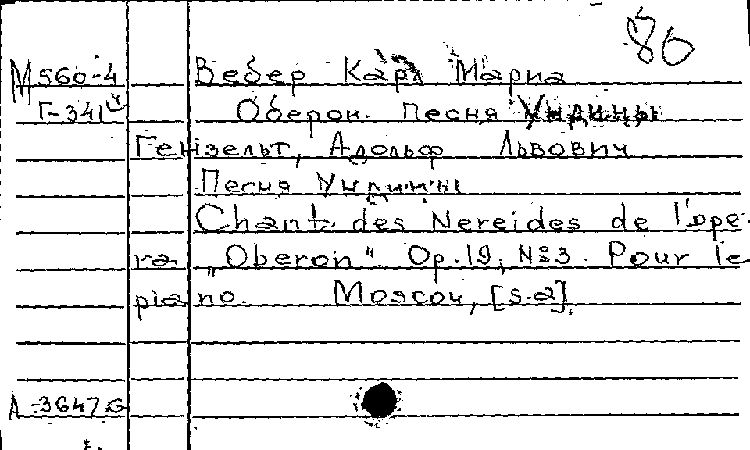 80
М 560-4 Вебер Карл Мариа
Г-341 Оберон. Песня Ундины
Гензельт, Адольф Львович
Песня Ундины
Chant des Nereides de l'ope-
ra „Oberon" Op. 19, №3. Pour le
piano. Moscou, [s.a].
А-3647